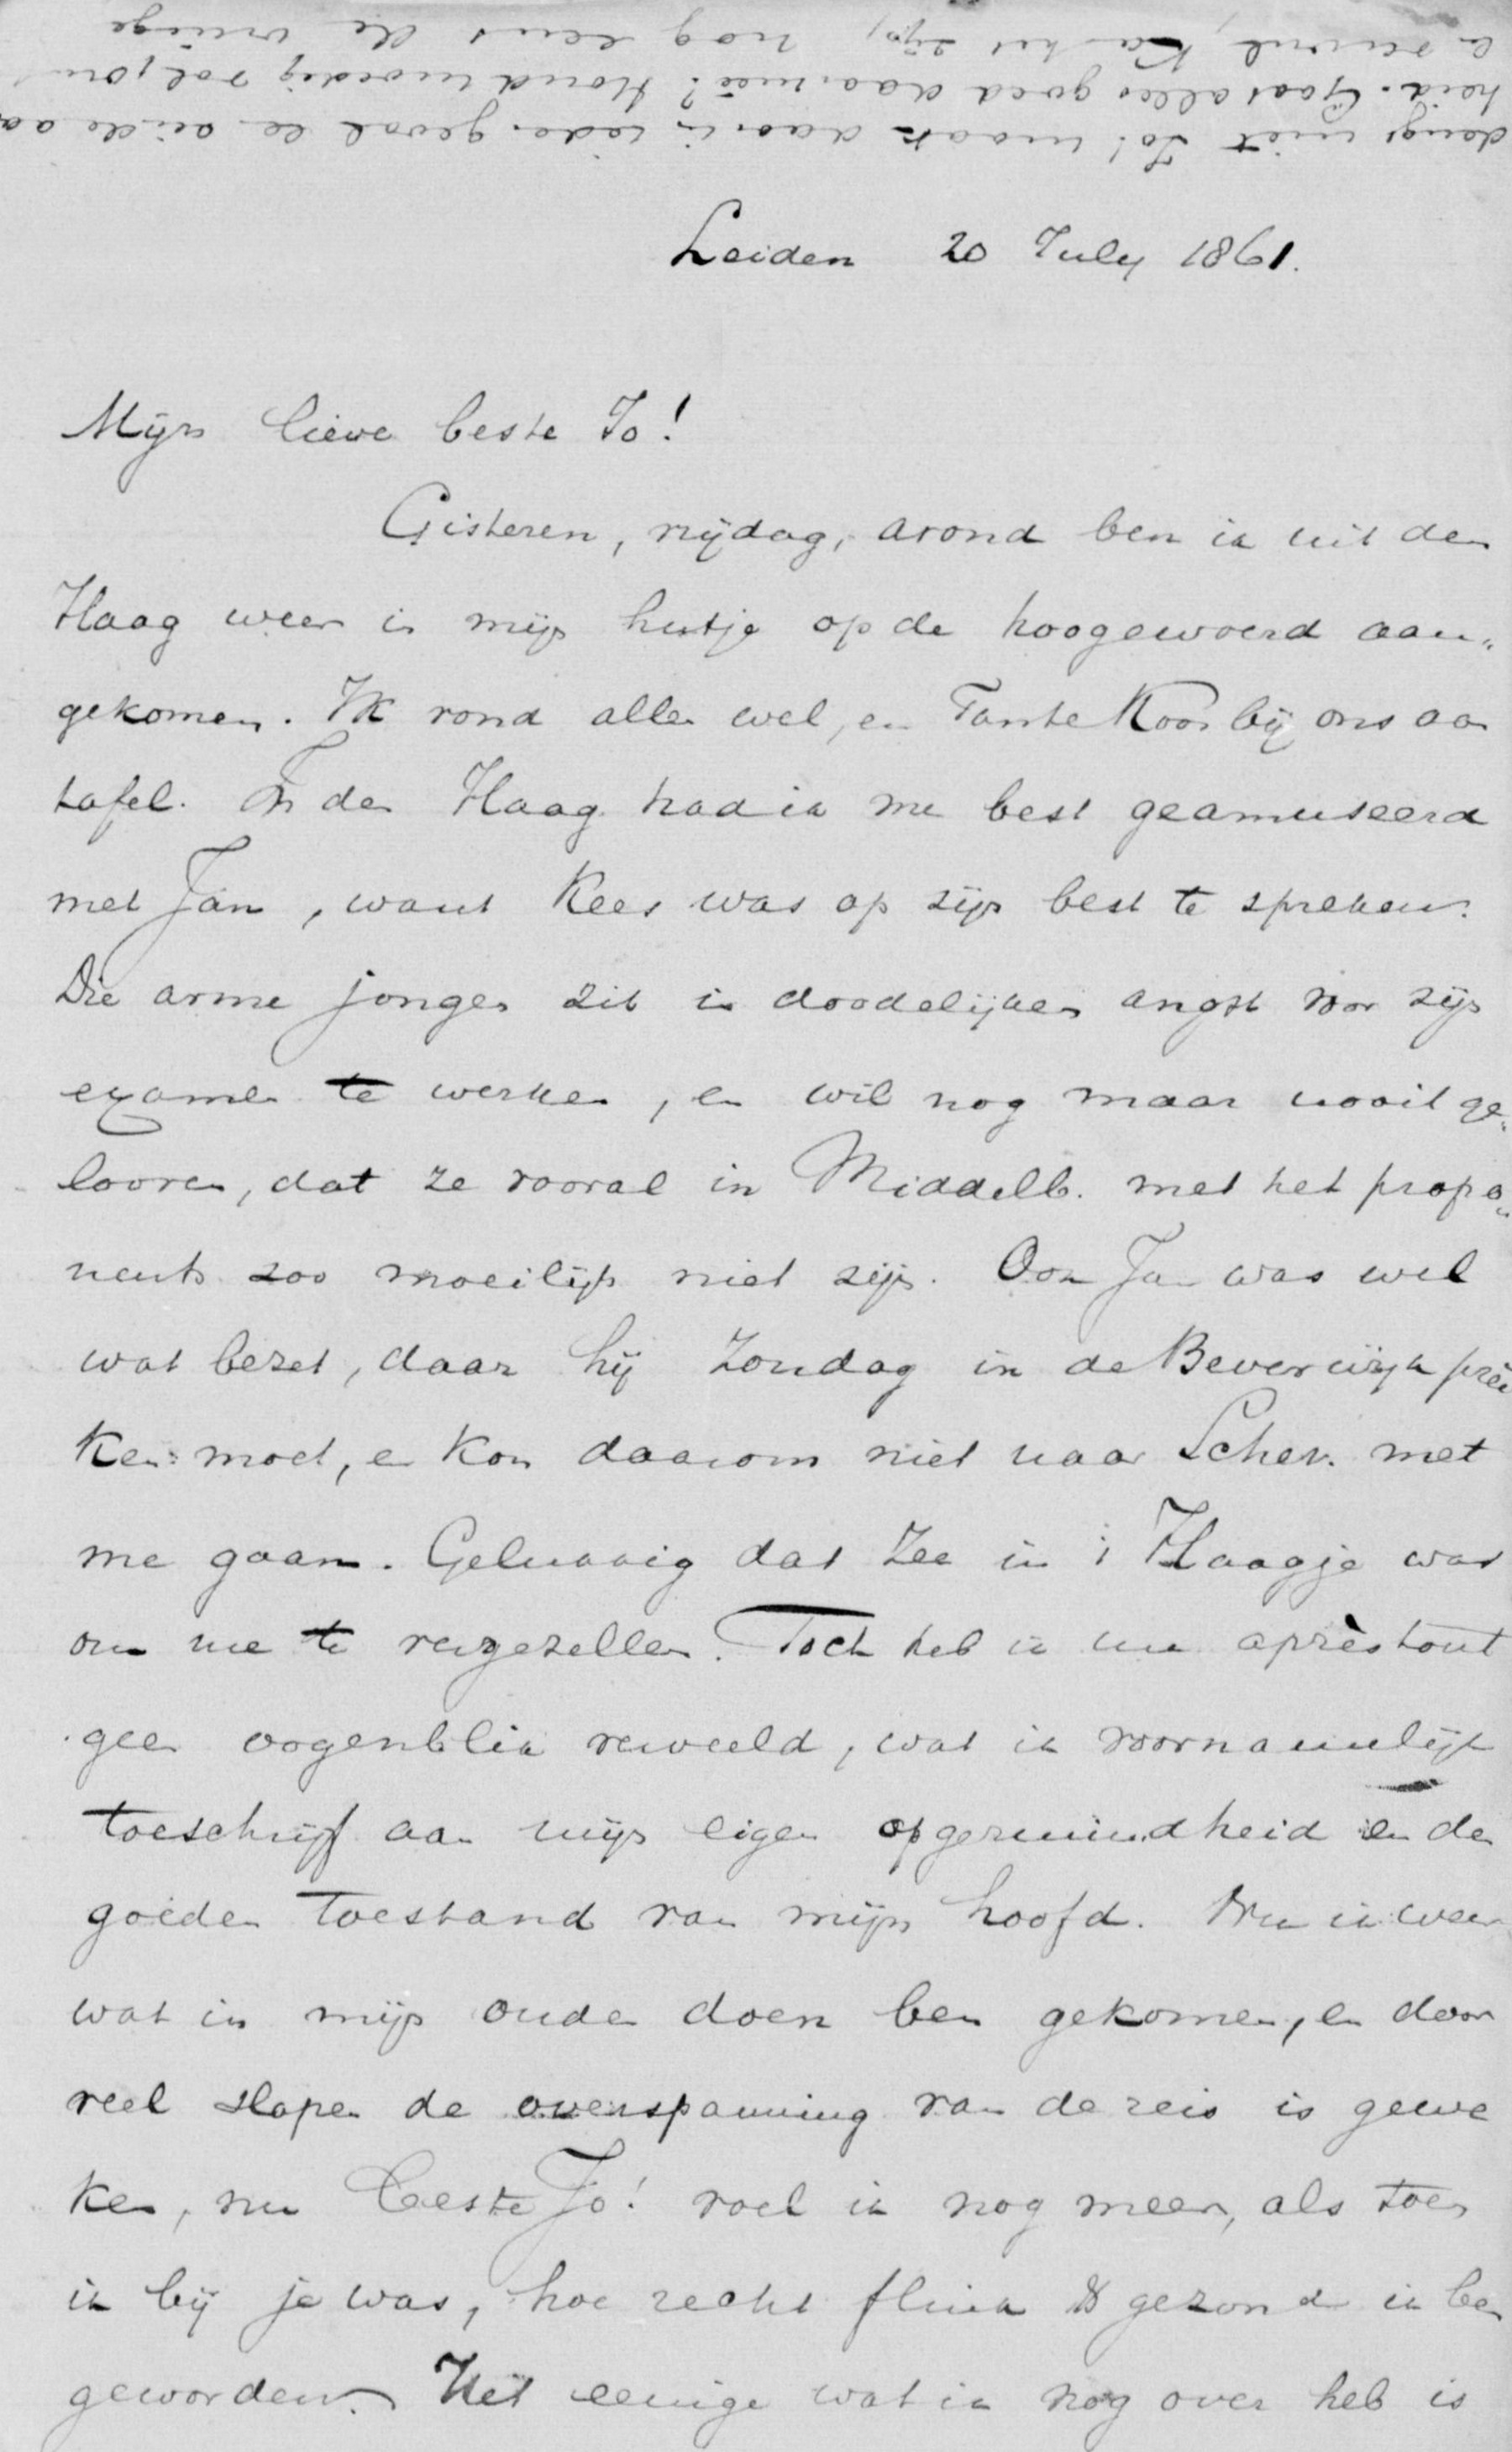 deugt niet Jo! maak daar in ieder geval een einde aa
heid. Gaat alles goed daarmeê? Houd moedig vol, om
en kan het zijn, nog eens de vorige
Leiden 20 July 1861.
Mijn lieve beste Jo!
Gisteren, vrijdag, avond ben ik uit den
Haag weer in mijn hutje op de hoogewoerd aan„
gekomen. Ik vond allen wel, en Tante Koos bij ons aan
tafel. In den Haag had ik me best geamuseerd
met Jan, want Kees was op zijn best te spreken.
Die arme jongen zit in doodelijken angst voor zijn
examen te werken, en wil nog maar nooit ge„
looven, dat ze vooral in Middelb. met het propo„
nents zoo moeilijk niet zijn. Ook Jan was wel
wat bezet, daar hij Zondag in de Beverwijk pree
ken moet, en kon daarom niet naar Schev. met
me gaan. Gelukkig dat Zee in 't Haagje was
om me te vergezellen. Toch heb ik me aprèstout
geen oogenblik verveeld, wat ik voornamelijk
toeschrijf aan mijn eigen opgeruimdheid en den
goeden toestand van mijn hoofd. Nu ik weer
wat in mijn ouden doen ben gekomen, en door
veel slapen de overspanning van de reis is gewe
ken, nu beste Jo! voel ik nog meer, als toen
ik bij je was, hoe recht flink & gezond ik ben
geworden. Het eenige wat ik nog over heb is